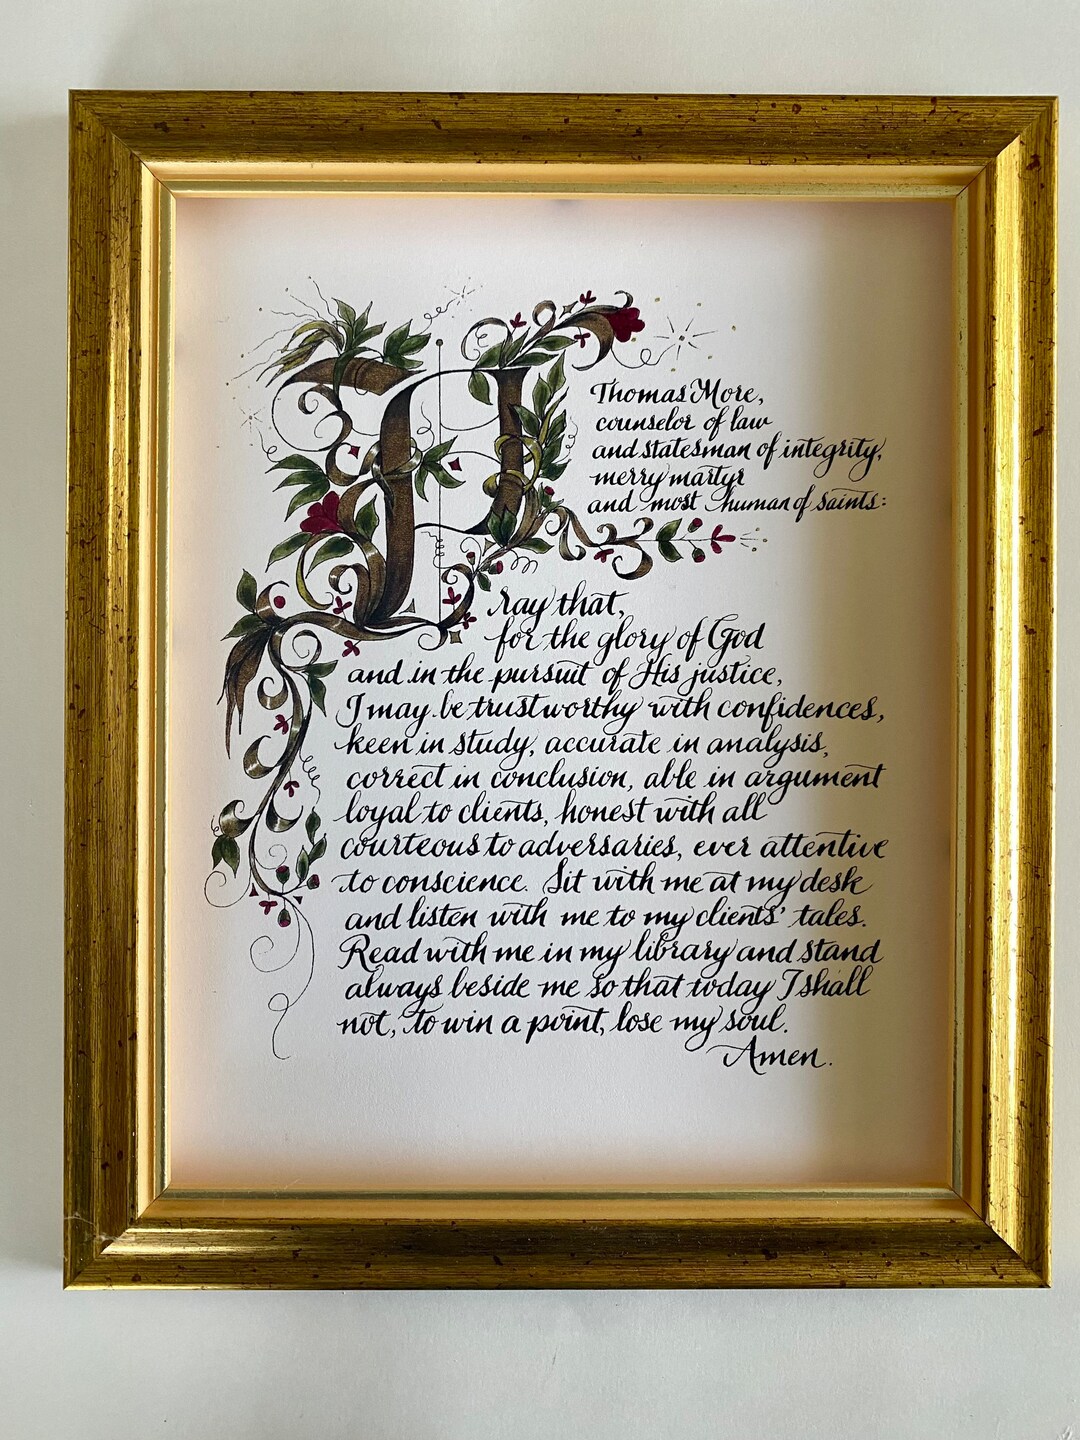 Thomas More,
counselor of law
and statesman of integrity,
merry martyr
and most human of saints:
Pray that,
for the glory of God
and in the pursuit of His justice,
I may be trustworthy with confidences,
keen in study, accurate in analysis,
correct in conclusion, able in argument
loyal to clients, honest with all
courteous to adversaries, ever attentive
to conscience. Sit with me at my desk
and listen with me to my clients' tales.
Read with me in my library and stand
always beside me so that today I shall
not, to win a point, lose my soul.
Amen.